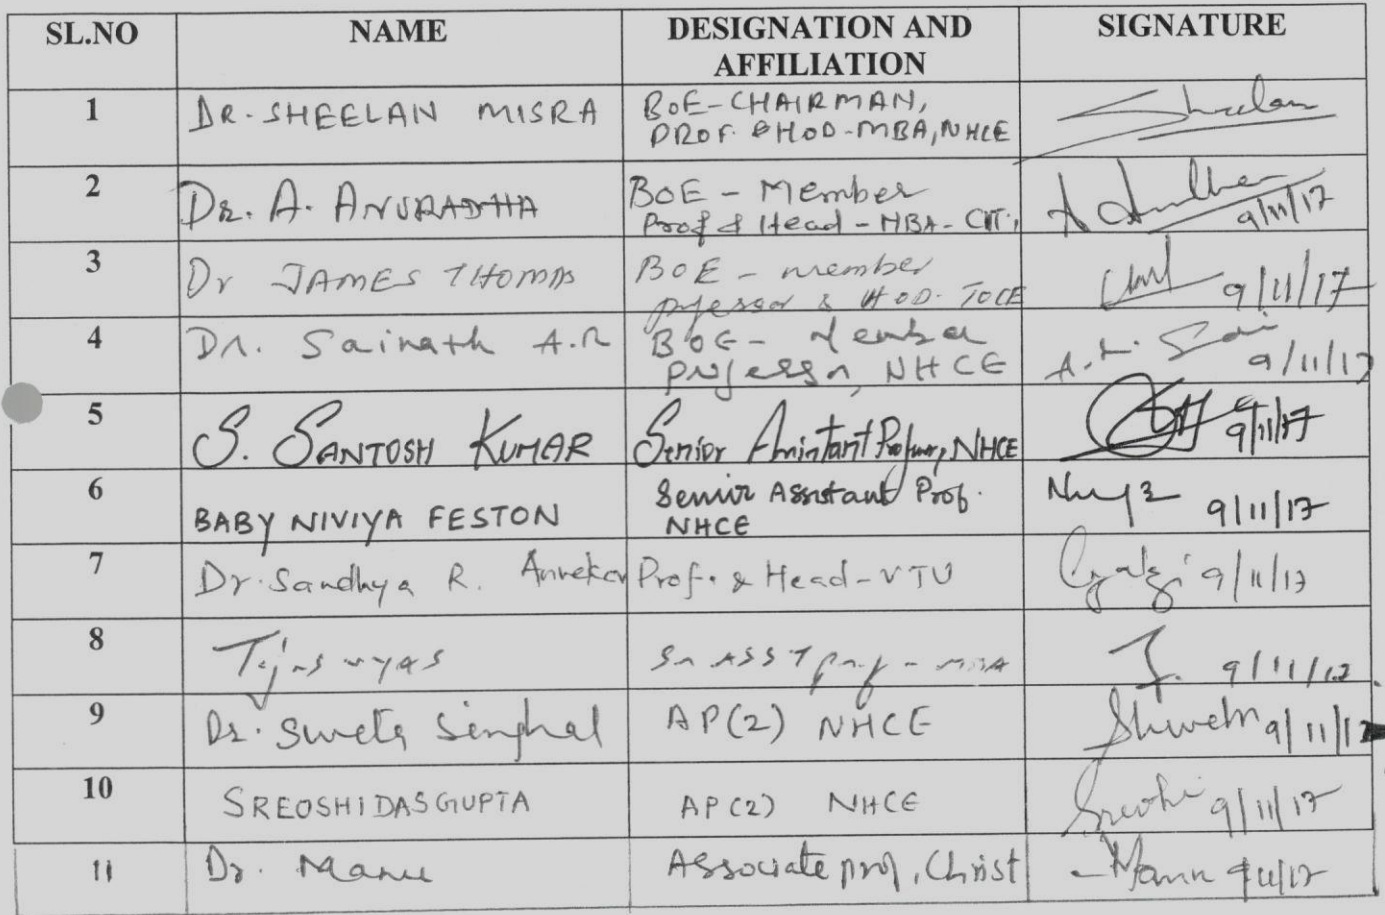 SL.NO NAME DESIGNATION AND AFFILIATION SIGNATURE
1 DR. SHEELAN MISRA BOE-CHAIRMAN, PROF. & HOD-MBA, NHCE Sheelan
2 DR. A. ANURADHA BOE - Member Prof & Head - MBA - CIT, 9/11/17
3 Dr JAMES THOMAS BOE - member professor & HOD. TOCE 9/11/17
4 Dr. Sainath A.R BOE - Member professor, NHCE A.R. Sai 9/11/17
5 S. SANTOSH KUMAR Senior Assistant Professor, NHCE 9/11/17
6 BABY NIVIYA FESTON Senior Assistant Prof. NHCE 9/11/17
7 Dr. Sandhya R. Anvekar Prof. & Head - VTU 9/11/17
8 Tejas vyas Sr ASST prof - MBA T. 9/11/17
9 Dr. Sweta Singhal AP(2) NHCE Shweta 9/11/17
10 SREOSHI DASGUPTA AP(2) NHCE Sreoshi 9/11/17
11 Dr. Manu Associate prof, Christ Manu 9/11/17